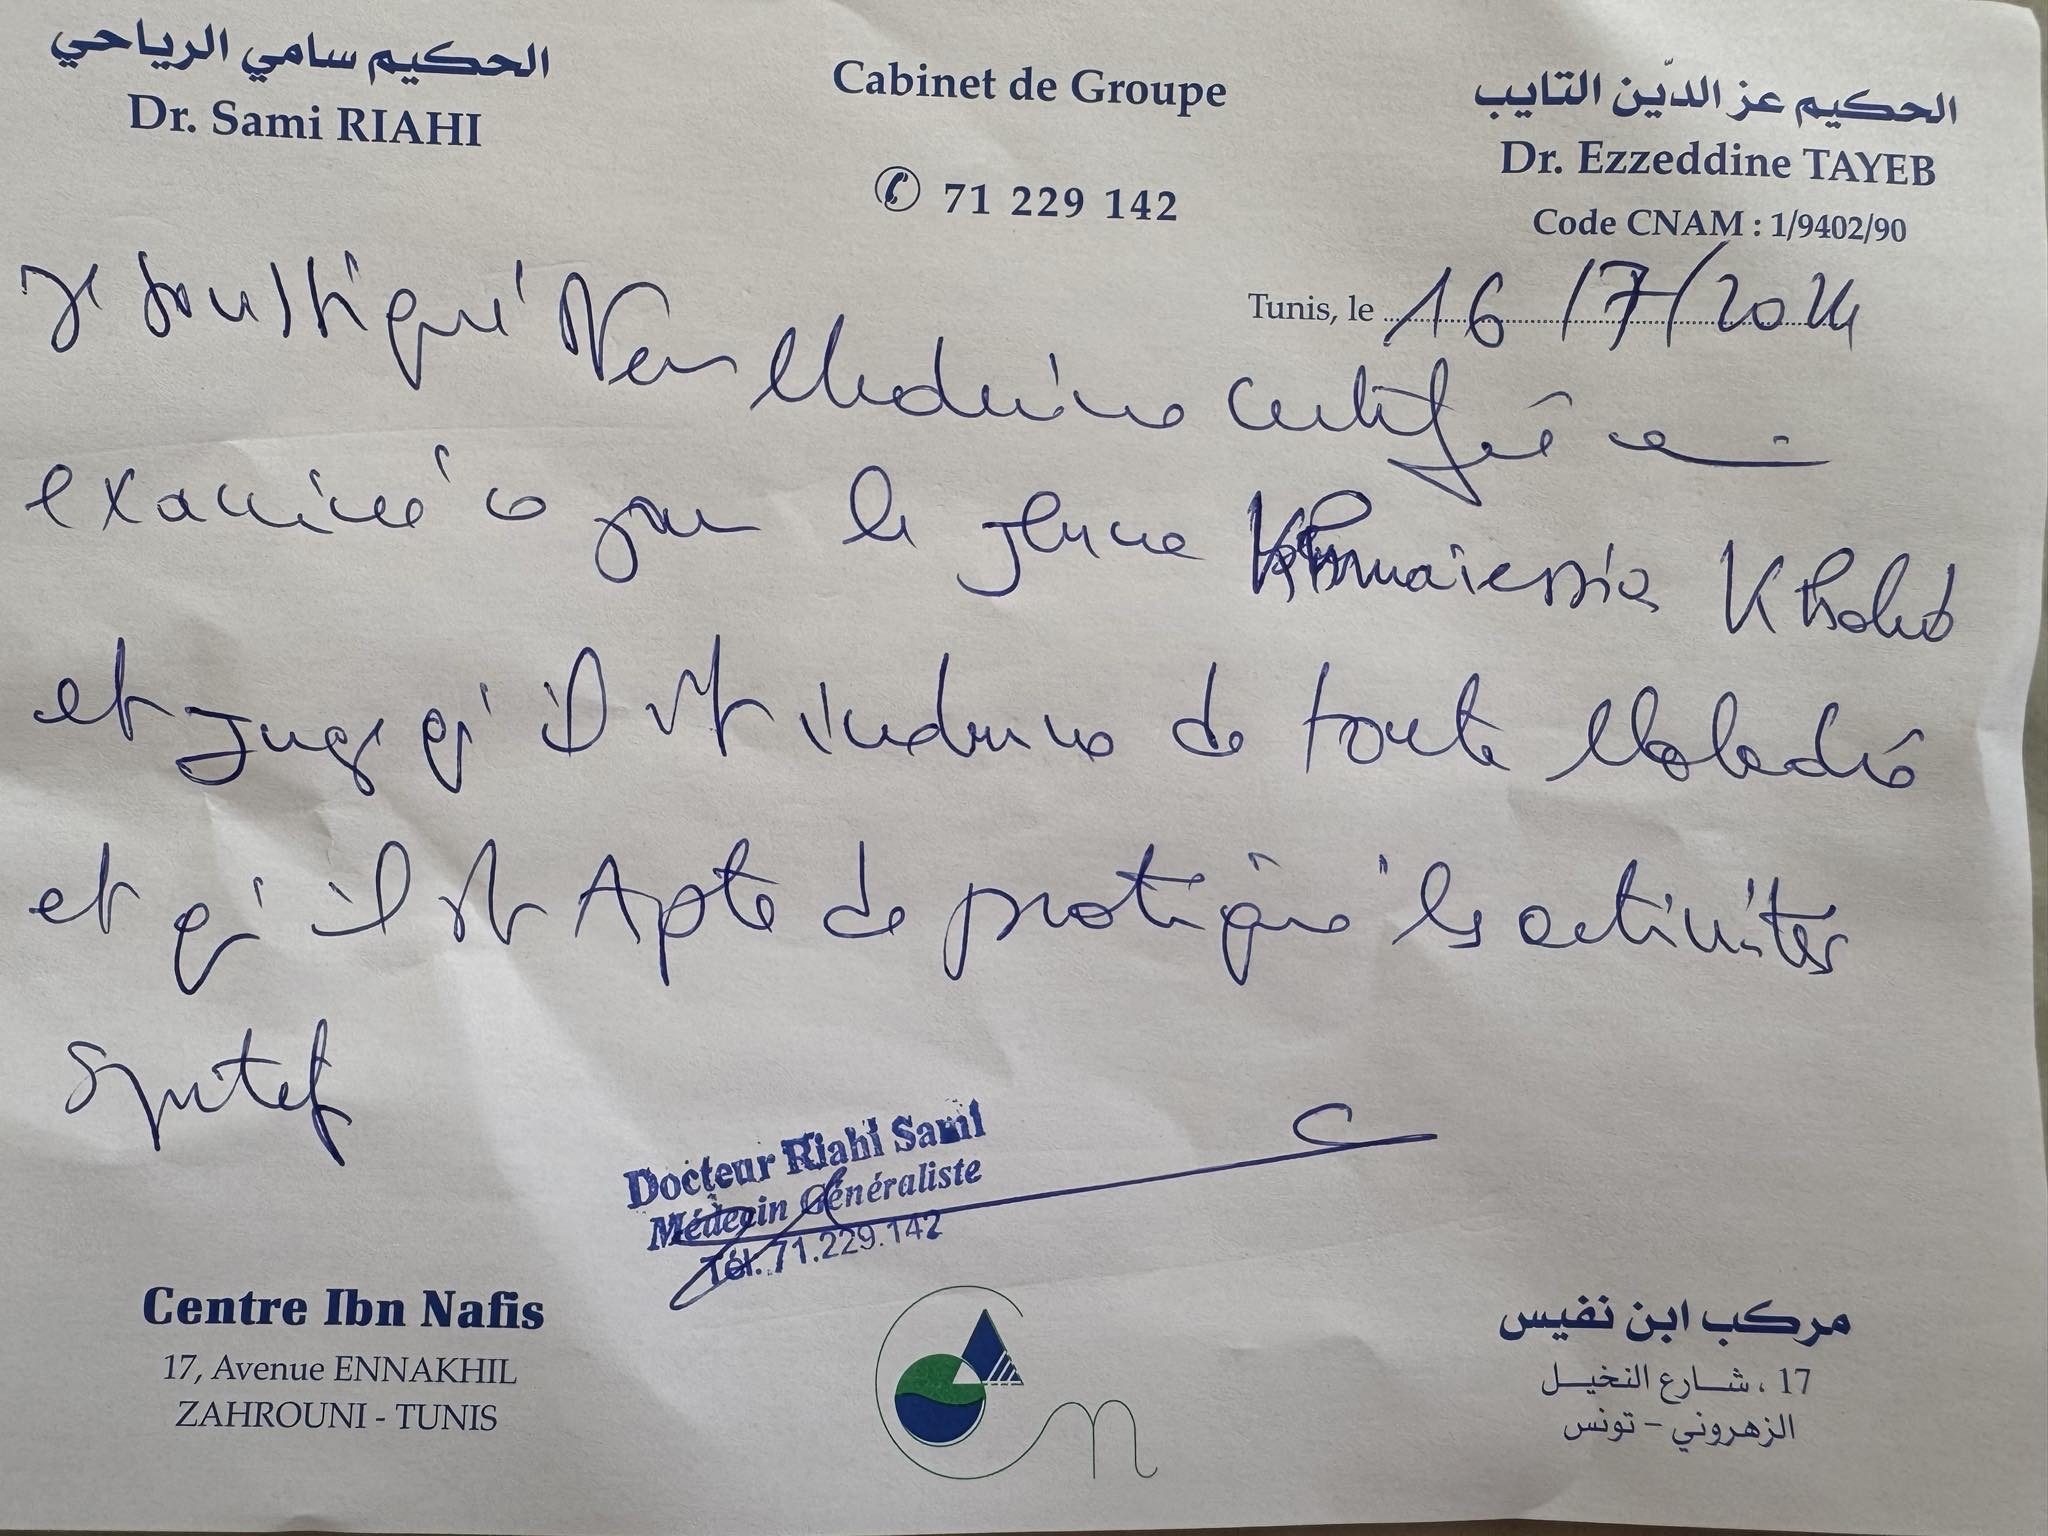 الحكيم سامي الرياحي
Dr. Sami RIAHI
Cabinet de Groupe
✆ 71 229 142
الحكيم عز الدّين التايب
Dr. Ezzeddine TAYEB
Code CNAM : 1/9402/90
Tunis, le 16/7/2024
Je Medecine certifie
examiné ce jour le jeune Khmaiessia Khaled
et juge qu'il est indemne de toute Maladie
et qu'il est Apte de pratique les activités
Sportif
Docteur Riahi Sami
Médecin Généraliste
Tél: 71.229.142
Centre Ibn Nafis
17, Avenue ENNAKHIL
ZAHROUNI - TUNIS
مركب ابن نفيس
17 ، شارع النخيل
الزهروني - تونس